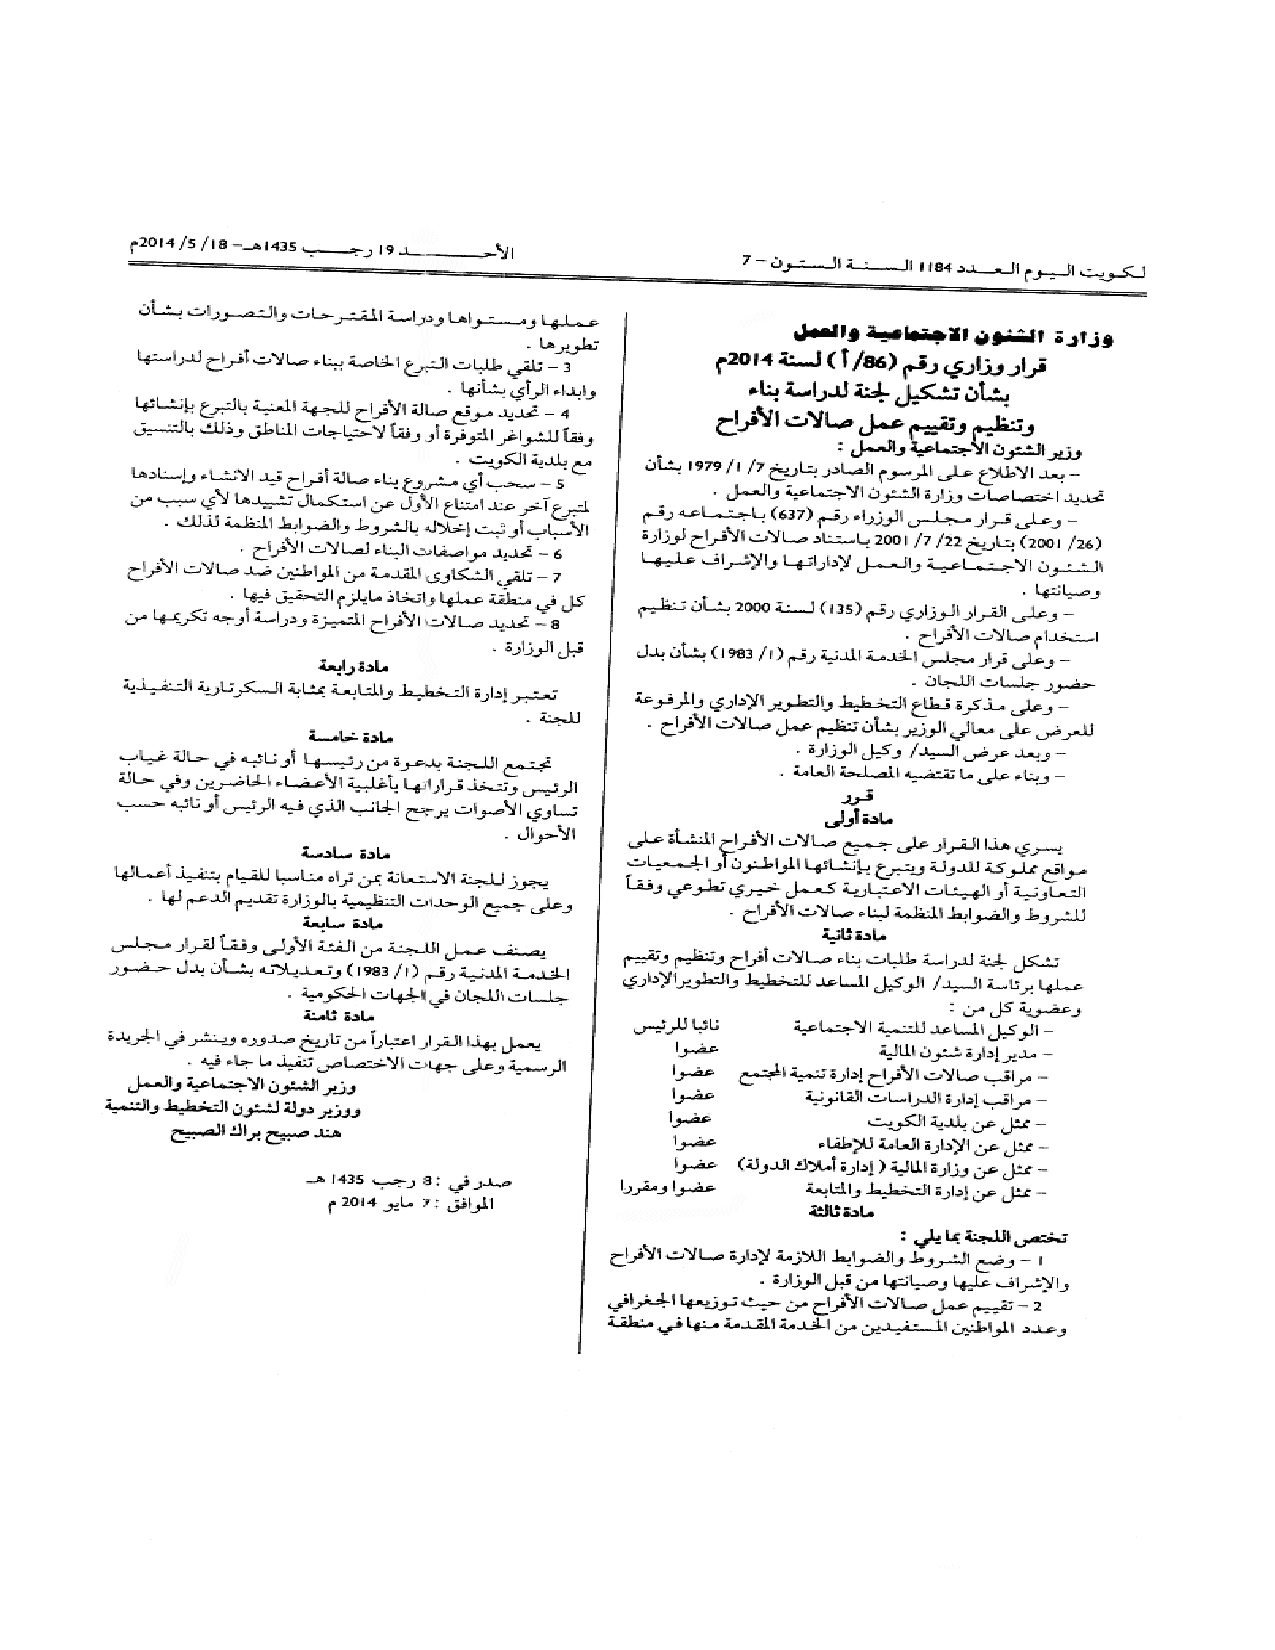 لكويت اليوم العدد 1184 السنة الستون – 7
الأحــــد 19 رجــب 1435هـ – 18 /5 /2014م
وزارة الشئون الاجتماعية والعمل
قرار وزاري رقم (86/ أ) لسنة 2014م
بشأن تشكيل لجنة لدراسة بناء
وتنظيم وتقييم عمل صالات الأفراح
وزير الشئون الاجتماعية والعمل :
– بعد الاطلاع على المرسوم الصادر بتاريخ 7/ 1/ 1979 بشأن
تحديد اختصاصات وزارة الشئون الاجتماعية والعمل .
– وعلى قرار مجلس الوزراء رقم (637) باجتماعه رقم
(26/ 2001) بتاريخ 22/ 7/ 2001 باستناد صالات الأفراح لوزارة
الشئون الاجتماعية والعمل لإداراتها والإشراف عليها
وصيانتها .
– وعلى القرار الوزاري رقم (135) لسنة 2000 بشأن تنظيم
استخدام صالات الأفراح .
– وعلى قرار مجلس الخدمة المدنية رقم (1/ 1983) بشأن بدل
حضور جلسات اللجان .
– وعلى مذكرة قطاع التخطيط والتطوير الإداري والمرفوعة
للعرض على معالي الوزير بشأن تنظيم عمل صالات الأفراح .
– وبعد عرض السيد/ وكيل الوزارة .
– وبناء على ما تقتضيه المصلحة العامة .
قرر
مادة أولى
يسري هذا القرار على جميع صالات الأفراح المنشأة على
مواقع مملوكة للدولة ويتبرع بإنشائها المواطنون أو الجمعيات
التعاونية أو الهيئات الاعتبارية كعمل خيري تطوعي وفقاً
للشروط والضوابط المنظمة لبناء صالات الأفراح .
مادة ثانية
تشكل لجنة لدراسة طلبات بناء صالات أفراح وتنظيم وتقييم
عملها برئاسة السيد/ الوكيل المساعد للتخطيط والتطوير الإداري
وعضوية كل من :
– الوكيل المساعد للتنمية الاجتماعية نائبا للرئيس
– مدير إدارة شئون المالية عضوا
– مراقب صالات الأفراح إدارة تنمية المجتمع عضوا
– مراقب إدارة الدراسات القانونية عضوا
– ممثل عن بلدية الكويت عضوا
– ممثل عن الإدارة العامة للإطفاء عضوا
– ممثل عن وزارة المالية ( إدارة أملاك الدولة) عضوا
– ممثل عن إدارة التخطيط والمتابعة عضوا ومقررا
مادة ثالثة
تختص اللجنة بما يلي :
1 – وضع الشروط والضوابط اللازمة لإدارة صالات الأفراح
والإشراف عليها وصيانتها من قبل الوزارة .
2 – تقييم عمل صالات الأفراح من حيث توزيعها الجغرافي
وعدد المواطنين المستفيدين من الخدمة المقدمة منها في منطقة
عملها ومستواها ودراسة المقترحات والتصورات بشأن
تطويرها .
3 – تلقي طلبات التبرع الخاصة ببناء صالات أفراح لدراستها
وابداء الرأي بشأنها .
4 – تحديد موقع صالة الأفراح للجهة المعنية بالتبرع بإنشائها
وفقاً للشواغر المتوفرة أو وفقاً لاحتياجات المناطق وذلك بالتنسيق
مع بلدية الكويت .
5 – سحب أي مشروع بناء صالة أفراح قيد الانشاء وإسنادها
لمتبرع آخر عند امتناع الأول عن استكمال تشييدها لأي سبب من
الأسباب أو ثبت إخلاله بالشروط والضوابط المنظمة لذلك .
6 – تحديد مواصفات البناء لصالات الأفراح .
7 – تلقي الشكاوى المقدمة من المواطنين ضد صالات الأفراح
كل في منطقة عملها واتخاذ مايلزم التحقيق فيها .
8 – تحديد صالات الأفراح المتميزة ودراسة أوجه تكريمها من
قبل الوزارة .
مادة رابعة
تعتبر إدارة التخطيط والمتابعة بمثابة السكرتارية التنفيذية
للجنة .
مادة خامسة
تجتمع اللجنة بدعوة من رئيسها أو نائبه في حالة غياب
الرئيس وتتخذ قراراتها بأغلبية الأعضاء الحاضرين وفي حالة
تساوي الأصوات يرجح الجانب الذي فيه الرئيس أو نائبه حسب
الأحوال .
مادة سادسة
يجوز للجنة الاستعانة بمن تراه مناسبا للقيام بتنفيذ أعمالها
وعلى جميع الوحدات التنظيمية بالوزارة تقديم الدعم لها .
مادة سابعة
يصنف عمل اللجنة من الفئة الأولى وفقاً لقرار مجلس
الخدمة المدنية رقم (1/ 1983) وتعديلاته بشأن بدل حضور
جلسات اللجان في الجهات الحكومية .
مادة ثامنة
يعمل بهذا القرار اعتباراً من تاريخ صدوره وينشر في الجريدة
الرسمية وعلى جهات الاختصاص تنفيذ ما جاء فيه .
وزير الشئون الاجتماعية والعمل
ووزير دولة لشئون التخطيط والتنمية
هند صبيح براك الصبيح
صدر في : 8 رجب 1435 هـ
الموافق : 7 مايو 2014 م